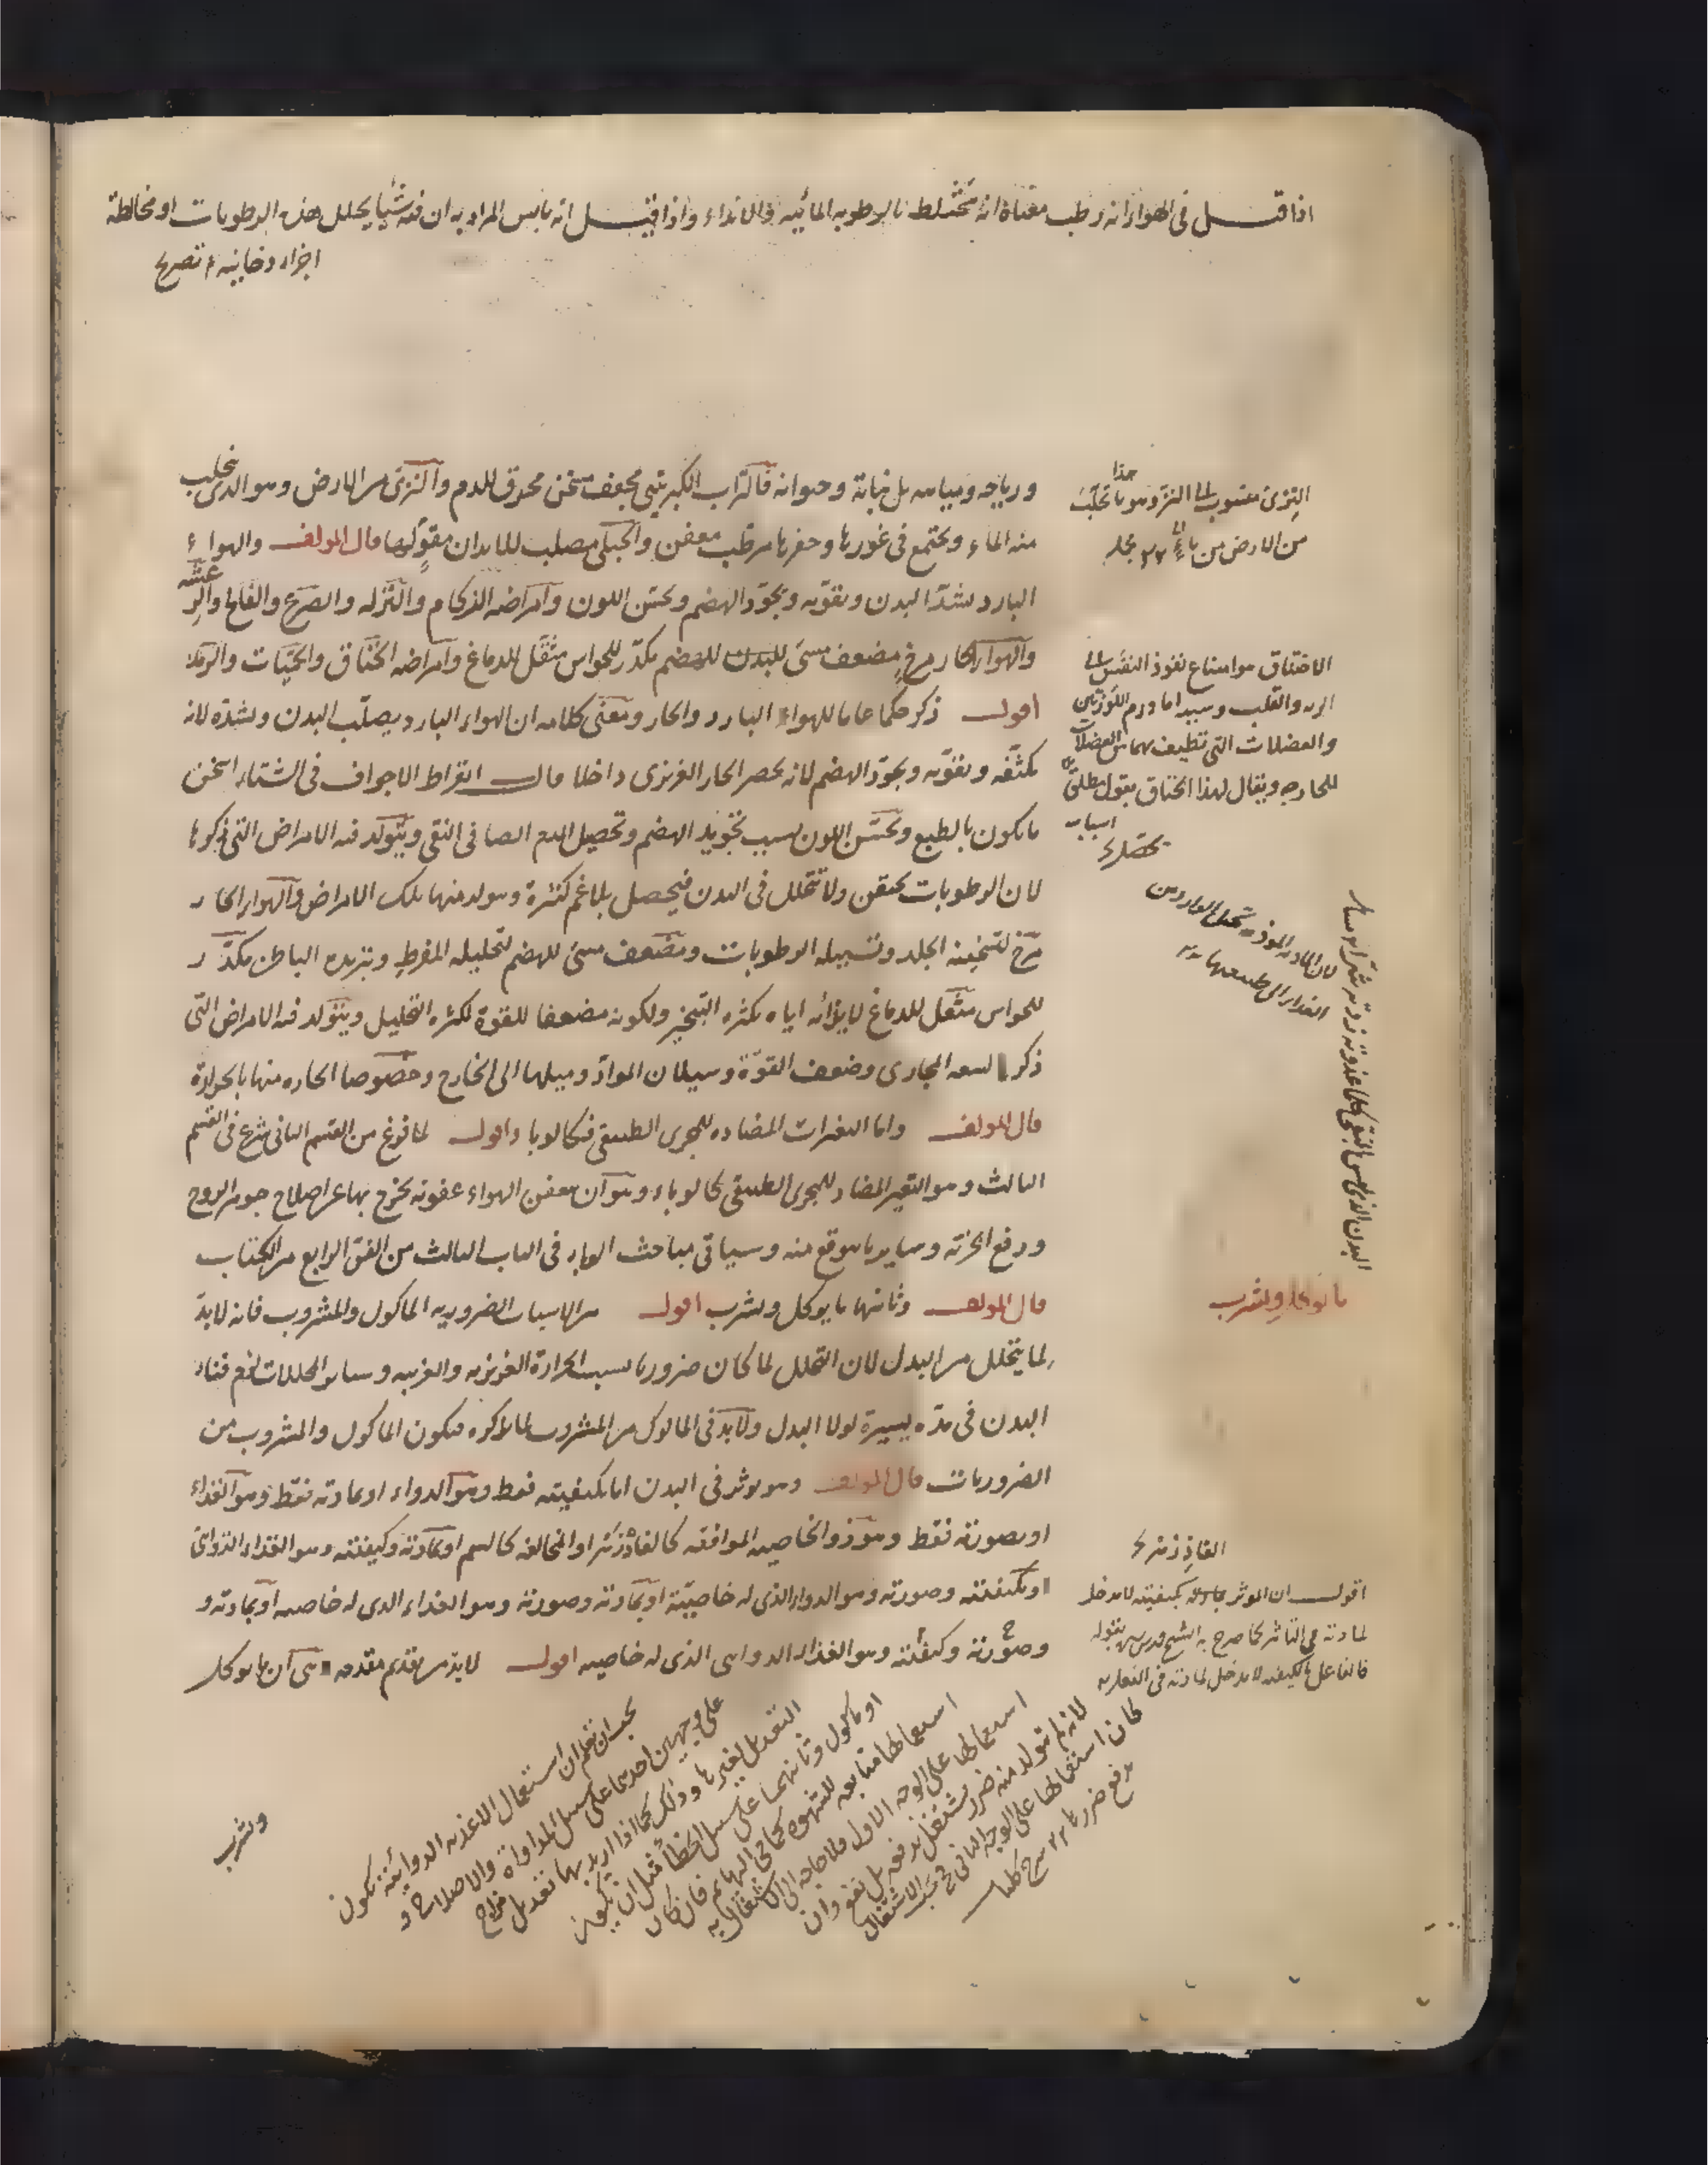 اذا قيل فى الهواء انه رطب معناه انه مختلط بالرطوبه المائيه والانداء واذا قيل انه يابس المراد به ان فيه شيئا يحلل هذه الرطوبات او مخالطة
اجزاء دخانيه
ورياحه ومياهه بل نباته وحيوانه فالتراب الكبريتى مجفف مسخن محرق للدم والنزى من الارض وهو الذى يتحلب
منه الماء ويجتمع فى غورها وحفرها مرطب معفن والجبلى مصلب للابدان مقوٍ لها قال المولف والهواء
البارد يشد البدن ويقويه ويجوّد الهضم ويحسّن اللون وامراضه الزكام والنزله والصرع والفالج والرعشه
والهواء الحار مرخٍ مضعف مسىء للبدن للهضم مكدّر للحواس مثقل للدماغ وامراضه الخناق والحميات والرمد
اقول ذكر حكما عاما للهواء البارد والحار ومعنى كلامه ان الهواء البارد يصلّب البدن ويشدّه لانه
يكثّفه ويقوّيه ويجوّد الهضم لانه يحصر الحار الغريزى داخلا قال ابقراط الاجواف فى الشتاء اسخن
ما يكون بالطبع ويحسّن اللون بسبب تجويد الهضم وتحصيل الدم الصافى النقى ويتولد فيه الامراض التى ذكرها
لان الرطوبات تحتقن ولا تتحلل فى البدن فيحصل بلاغم كثيرة ويتولد منها تلك الامراض والهواء الحار
مرخ لتسخينه الجلد وتسييله الرطوبات ومضعف مسىء للهضم لتحليله المفرط وتبريده الباطن مكدّر
للحواس مثقل للدماغ لايذائه اياه بكثره التبخير ولكونه مضعفا للقوة لكثره التحليل ويتولد فيه الامراض التى
ذكر لسعه المجارى وضعف القوّة وسيلان الموادّ وميلها الى الخارج وخصوصا الحاره منها بالحرارة
قال المولف واما التغيرات المضاده للمجرى الطبيعى فكالوبا اقول لما فرغ من القسم الثانى شرع فى القسم
الثالث وهو التغير المضاد للمجرى الطبيعى كالوباء وهو ان يعفن الهواء عفونه يخرج بها عن اصلاح جوهر الروح
ودفع ابخرته وساير ما يتوقع منه وسياتى مباحث الوباء فى الباب الثالث من الفن الرابع من الكتاب
قال المولف وثانيها ما يوكل ويشرب اقول من الاسباب الضروريه الماكول والمشروب فانه لا بدّ
لما يتحلل من البدل لان التحلل لما كان ضروريا بسبب الحرارة الغريزيه والغريبه وساير المحللات لزم فناء
البدن فى مدّه يسيرة لولا البدل ولا بد فى الماكول من المشروب لما ذكره فيكون الماكول والمشروب من
الضروريات قال المولف وهو يوثر فى البدن اما بكيفيته فقط وهو الدواء او بمادته فقط وهو الغذاء
او بصورته فقط وهو ذو الخاصيه الموافقه كالفاذزهر او المخالفه كالسم او بمادته وكيفيته وهو الغذاء الدوائى
او بكيفيته وصورته وهو الدواء الذى له خاصيّة او بمادته وصورته وهو الغذاء الذى له خاصيه او بمادته و
وصورته وكيفيته وهو الغذاء الدوائى الذى له خاصيه اقول لا بدّ من تقديم مقدمه هى ان ما يوكل
ويشرب
النزى منسوب الى النز وهو ما تحلّب
من الارض من ماء
الاختناق هو امتناع نفوذ النفس الى
الريه والقلب وسببه اما ورم اللوزتين
والعضلات التى تطيف بهما من العضلات
الخارجه ويقال لهذا الخناق بقول مطلق
اسباب
ما يوكل ويشرب
الفاذزهر
اقول ان الموثر بكيفيته لا مدخل
لمادته فى التاثير كما صرح به الشيخ بقوله
فالفاعل بالكيفيه لا مدخل لمادته فى الفعل
يجب ان تعلم ان استعمال الاغذيه الدوائيه يكون
على وجهين احدهما على سبيل المداواة والاصلاح و
التعديل لغيرها وذلك كما اذا اريد بها تعديل مزاج
او ماكول وثانيهما على سبيل الخطأ مثل ان يكون
استعمالها متابعه للشهوه كما فى البهايم فان كان
استعمالها على الوجه الاول فلا حاجه الى الاشتغال به
لانه لم يتولد منه ضرر يشتغل بدفعه بل نفع وان
كان استعمالها على الوجه الثانى فيجب الاشتغال
بدفع ضررها